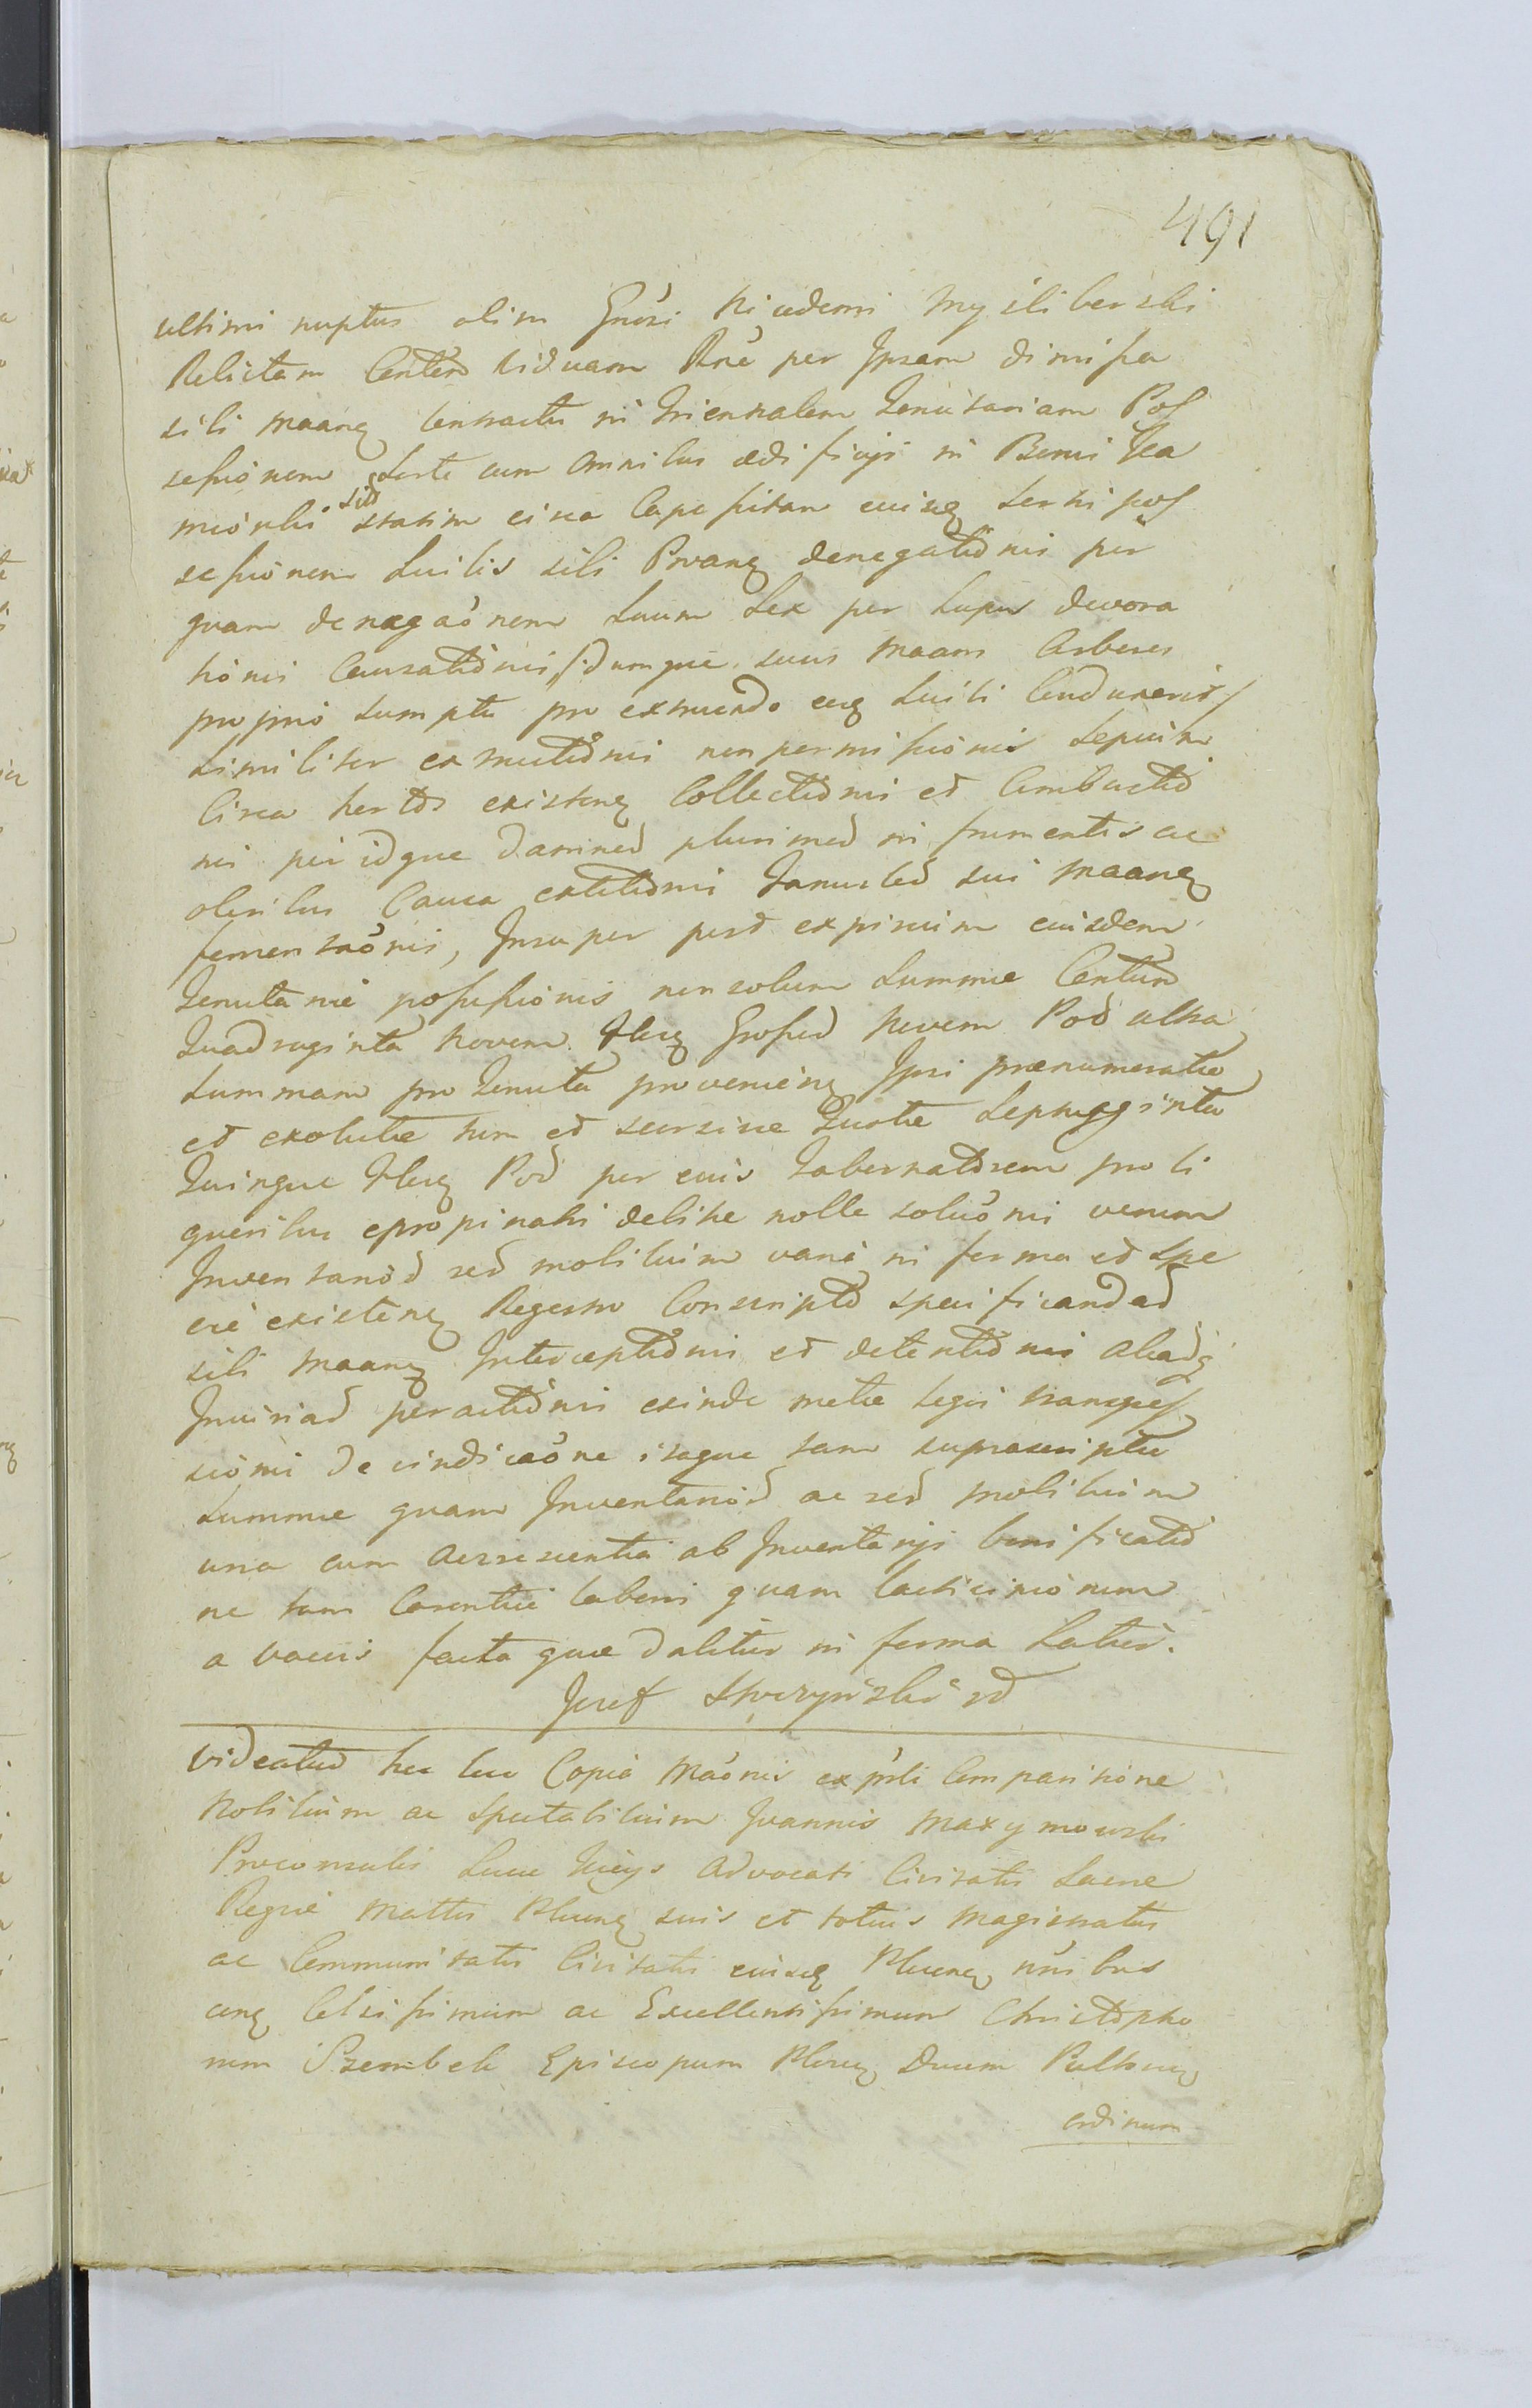 491
ultimi nuptus olim Gnosi Nicodemi Mysliberski
Relictam Conten Viduam Rne per Ipsam dimissa
sibi Maaneq Contractu in Triennalem Tenutariam Pos
sessionem Sorte cum omnibus ædificijs in Bonis
statim circa Capessitam eiusq Sortis pos
sessionem sibi denegationis per
quam denegaonem Suum Sex per Lupus devora
tionis Causationis dumque suus Maans Arbores
proprio sumptu pro extruendo Conduxerit
Similiter extructionis non permissionis Sepium
Circa hortos existenq Collectionis et Combustio
nis per idque damnor plurimor in frumentis ac
oleribus Causa extitionis sui Maaneq
fermentaonis, Insuper post expirium eiusdem
Tenutariæ possessionis non solum Summæ Centum
Quadraginta Novem flenq Grossor Novem Pol ultra
Summam pro Tenuta provenienq Ipsi prænumeratæ
et exolutæ tum et seorsivæ Quotæ Septuaginta
Quinque flenq Pol per eius Tabernatorem pro li
quoribus epropinatis debitæ nolle soluonis verum
Inventarior rer mobilium varia in forma et spe
cie existenq Regestro Conscripto specificandar
sibi Maaneq Interceptionis et detentionis aliarq
Iniuriar peractionis exinde metæ legis transgres
sionis de vindicaone itaque tam suprascriptæ
Summæ quam Inventarior ac rer mobilium
una cum Accrescentia ab Inventarijs bonificatio
ne tam Carentiæ laboris quam lacticinionum
a vaccis facta quæ dabitur in forma Latius.
Josef Skorzynski
Videatur hoc loco Copia Maonis ex parte Comparitione
Nobilium ac Spectabilium Joannis Maxymowski
Proconsulis Lucæ Advocati Civitatis Sacræ
Regiæ Mattis Plocenq suis et totius Magistratus
ac Communitatis Civitatis eiusq Plocenq nnibus
conq Celsissimum ac Excellentissimum Christopho
rum Szembek Episcopum Plocenq Ducem Pultoveq
ordinum